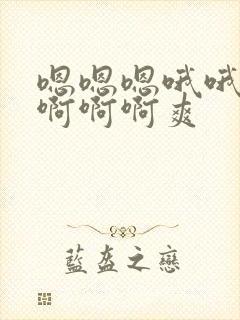 嗯嗯嗯哦哦
啊啊啊爽
藍盔之戀